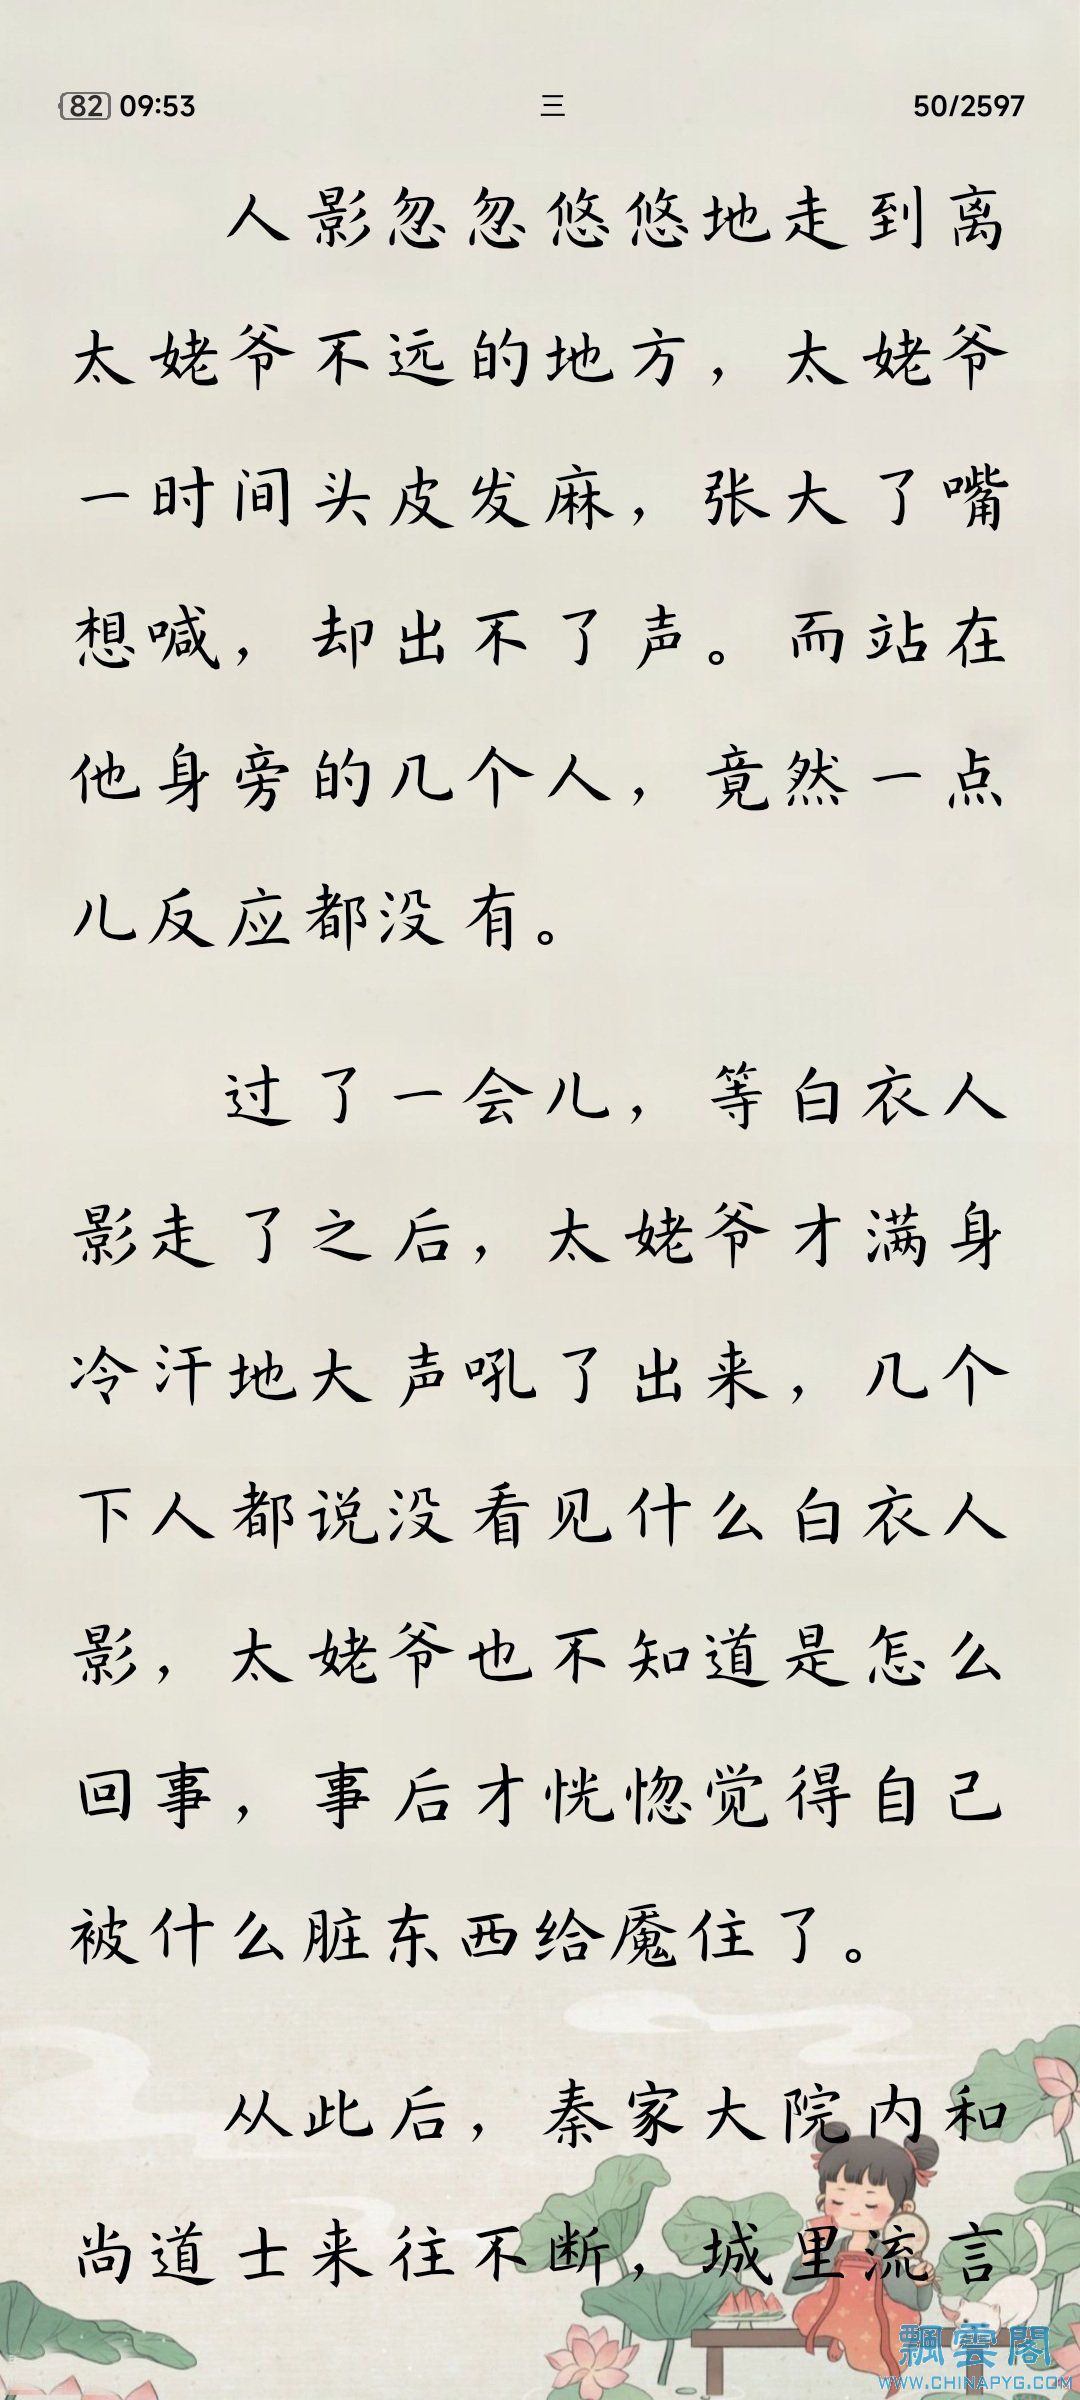 82 09:53 三 50/2597
人影忽忽悠悠地走到离
太姥爷不远的地方，太姥爷
一时间头皮发麻，张大了嘴
想喊，却出不了声。而站在
他身旁的几个人，竟然一点
儿反应都没有。
过了一会儿，等白衣人
影走了之后，太姥爷才满身
冷汗地大声吼了出来，几个
下人都说没看见什么白衣人
影，太姥爷也不知道是怎么
回事，事后才恍惚觉得自己
被什么脏东西给魇住了。
从此后，秦家大院内和
尚道士来往不断，城里流言
飄雲閣
WWW.CHINAPYG.COM